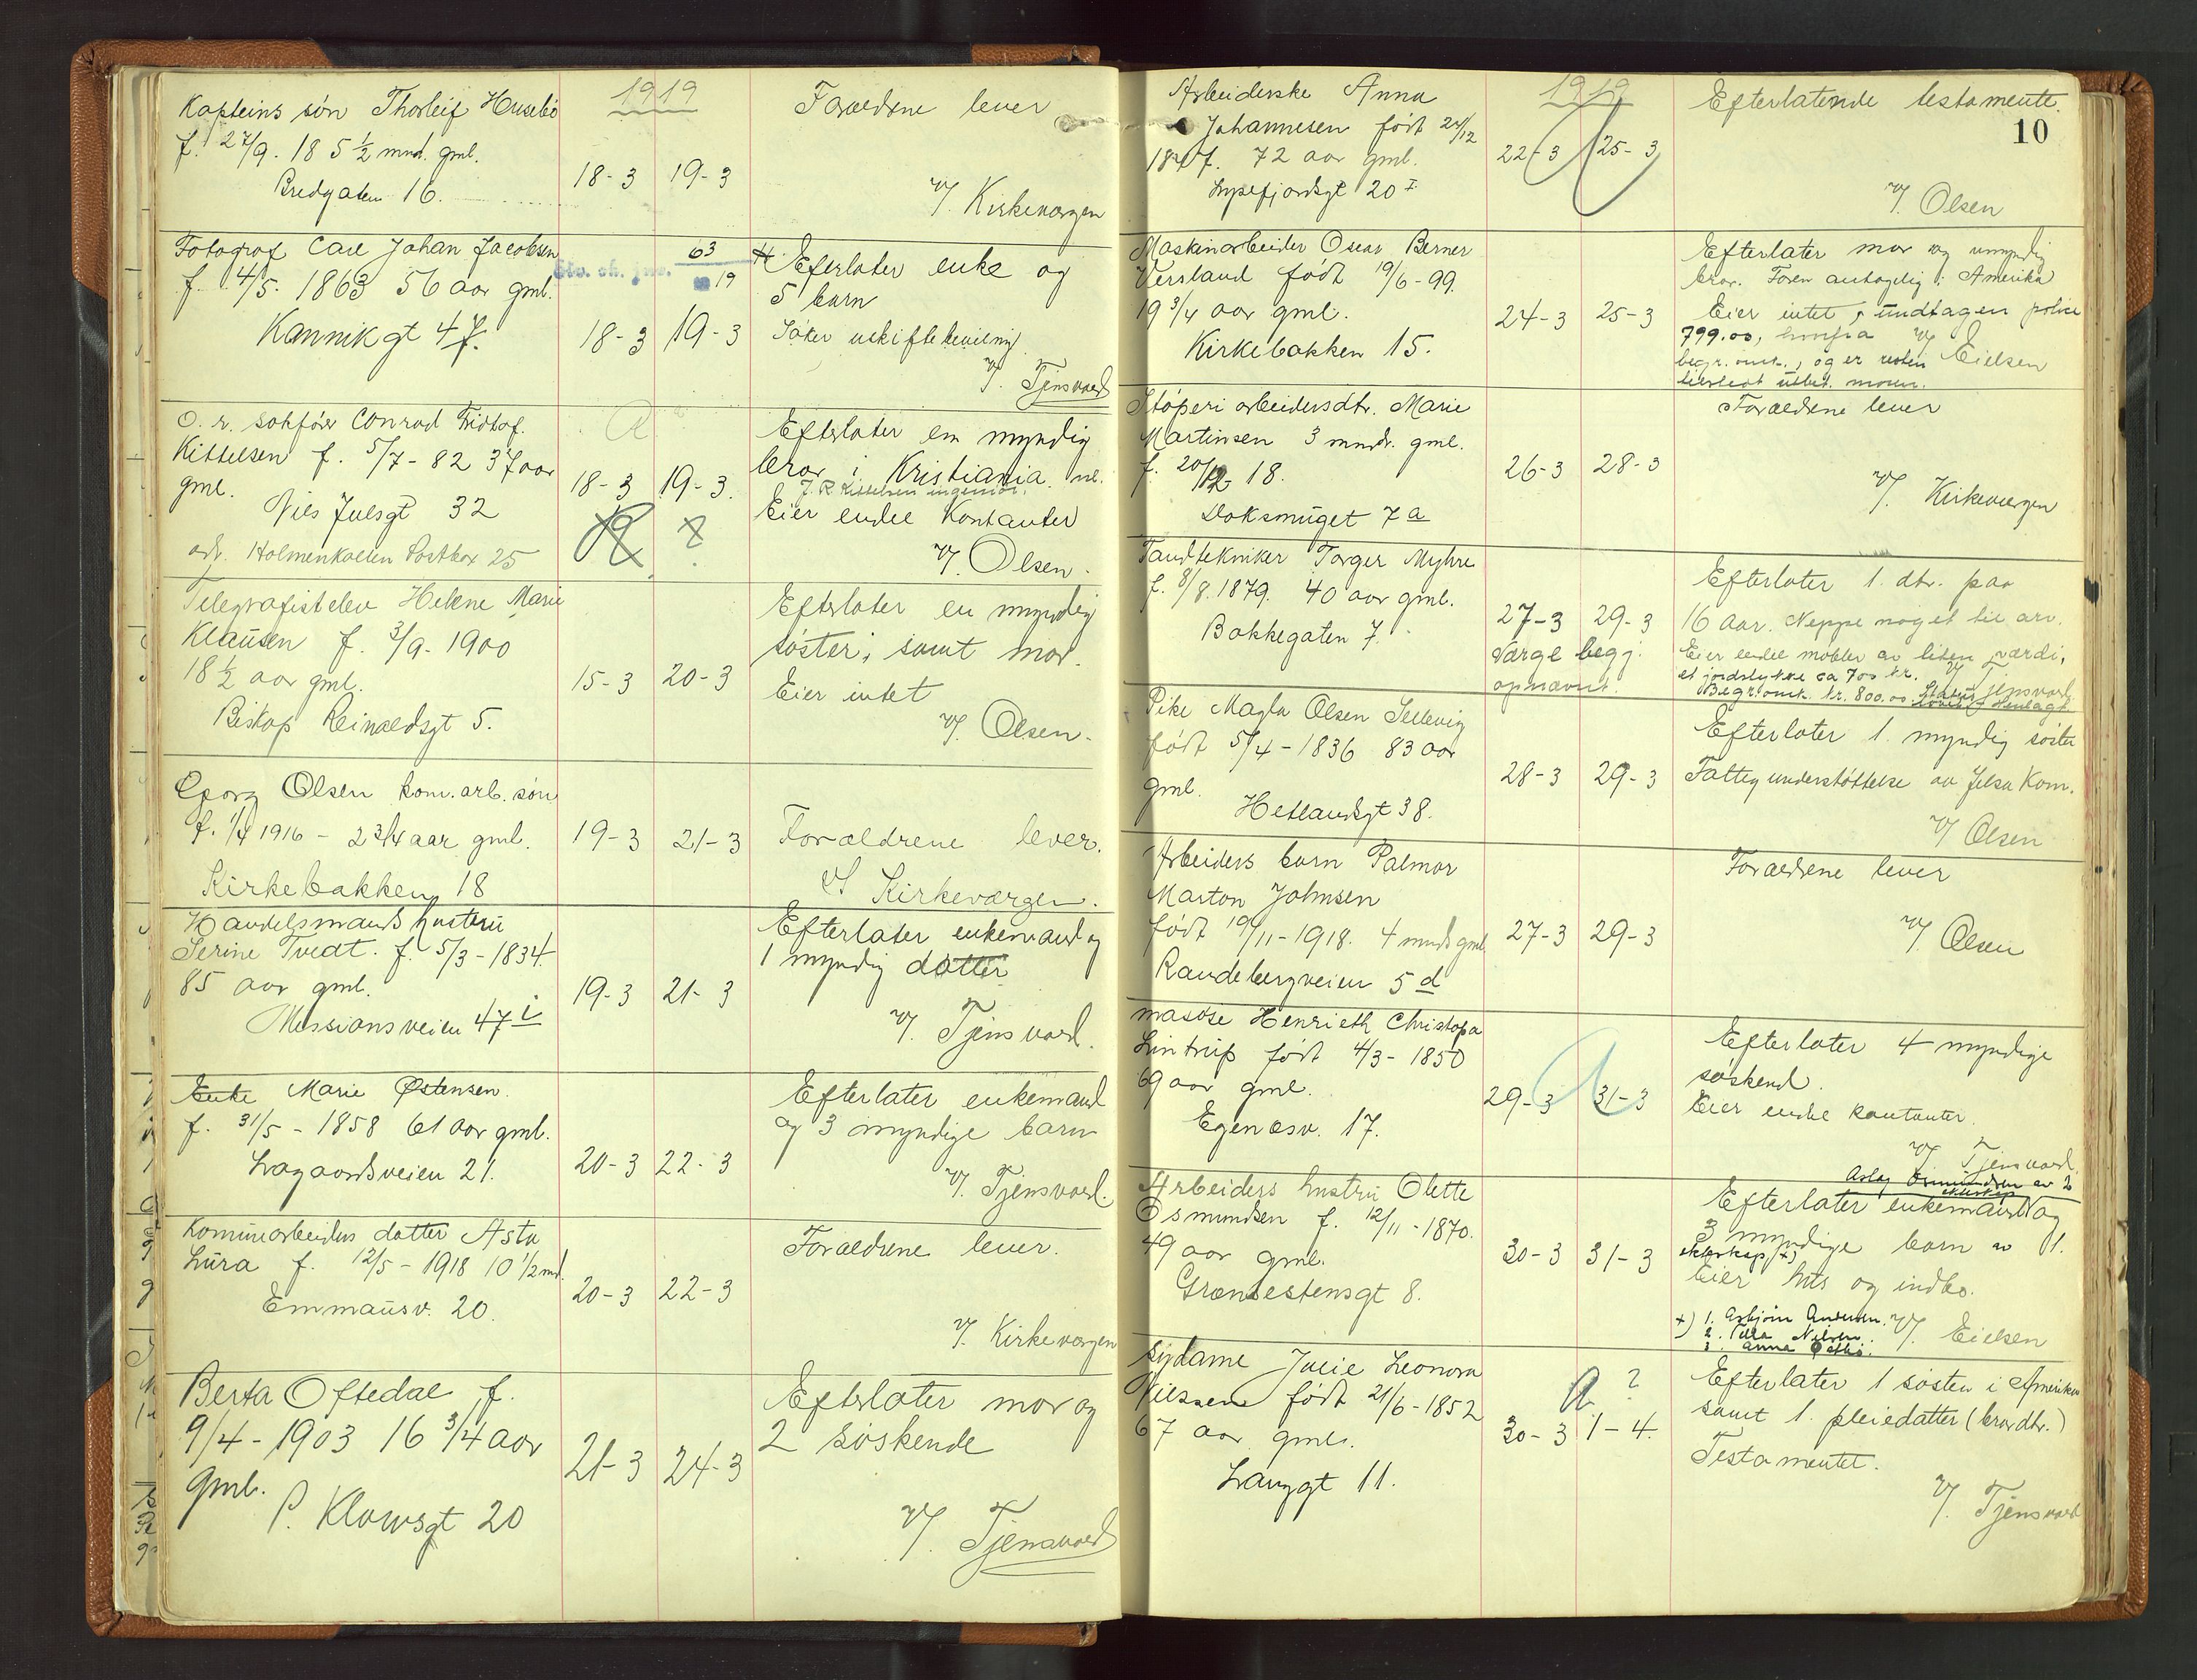 1919
Kapteins søn Thorleif Husebø
f. 27/9. 18 5 1/2 mnd. gml.
Bredgaten 16.
18-3 19-3
Forældrene lever
v/. Kirkevergen
Fotograf Carl Johan Jacobsen
f. 4/5. 1863 56 aar gml.
Kannikgt 47.
63
19
18-3 19-3
Efterlater enke og
5 barn
Søker uskiftebevilling
v/. Tjensvoll
O. r. sakfører Conrad Fridtof.
Kittelsen f. 5/7-82 37 aar
gml.
Niels Juelsgt 32
adr. Holmenkollen Postbox 25
18-3 19-3.
Efterlater en myndig
bror i Kristiania. nl.
J. R. Kittelsen ingeniør.
Eier endel Kontanter
v/. Olsen.
Telegrafistelev Helene Marie
Klausen f. 3/9-1900
18 1/2 aar gml.
Biskop Reinaldsgt 5.
15-3 20-3
Efterlater en myndig
søster, samt mor.
Eier intet
v/. Olsen.
Georg Olsen kom. arb. søn
f. 1/4 1916 - 2 3/4 aar gml.
Kirkebakken 18
19-3 21-3
Forældrene lever.
v/ Kirkevergen.
Handelsmands hustru
Serine Tvedt. f. 5/3-1834.
85 aar gml.
Missionsveien 47 i
19-3 21-3
Efterlater enkemand og
1 myndig datter
v/. Tjensvoll.
Enke Marie Østensen.
f. 31/5-1858 61 aar gml.
Lagaardsveien 21.
20-3 22-3
Efterlater enkemand
og 3 myndige barn
v/. Tjensvoll.
Kommunarbeiders datter Asta
Lura f. 12/5-1918 10 1/2 md.
Emmausv. 20.
20-3 22-3
Forældrene lever.
v/. Kirkevergen
Berta Oftedal f.
9/4-1903 16 3/4 aar
gml.
P. Klowsgt 20
21-3 24-3
Efterlater mor og
2 søskende
v/. Tjensvoll
10
1919
Arbeiderske Anna
Johannesen født 24/12
72 aar gml.
Lysefjordsgt 20 I
22-3 25-3
Efterlatende testamente.
v/. Olsen
Maskinarbeider Oscar Berner
Versland født 19/6-99.
19 3/4 aar gml.
Kirkebakken 15.
24-3 25-3
Efterlater mor og umyndig
bror. Faren antagelig i Amerika
Eier intet, undtagen police
799.00, hvorfra v/ Eielsen
begr. omk., og er resten
utbet. moren.
Støperiarbeidersdtr. Marie
Martinsen 3 mndr. gml.
f. 20/12-18.
Doksmuget 7 a
26-3 28-3
Forældrene lever
v/. Kirkevergen
Tandtekniker Torger Myhre
f. 8/8.1879. 40 aar gml.
Bakkegaten 7.
27-3 29-3
Værge begj.
opnævnt.
Efterlater 1. dtr. paa
16 aar. Neppe noget til arv.
Eier endel møbler av liten værdi,
et jordstykke ca 700 kr. v/ Tjensvoll
Begr. omk. kr. 800.00
Pike Magla Olsen Sellevig
født 5/4-1836 83 aar
gml.
Hetlandsgt 38.
28-3 29-3
Efterlater 1. myndig søster
Fattigunderstøttelse av Jelsa Kom.
v/ Olsen
Arbeiders barn Palmar
Marton Johnsen
født 19/11-1918. 4 mnds gml.
Randebergveien 5 d
27-3 29-3
Forældrene lever
v/. Olsen
masøse Henrieth Christofa
Lintrup født 4/3-1850
69 aar gml.
Egenæsv. 17.
29-3 31-3
Efterlater 4 myndige
søskend.
Eier endel kontanter.
v/ Tjensvoll.
Arbeiders hustru Olette
Osmundsen f. 12/11-1870.
49 aar gml.
Grønnestensgt 8.
30-3 31-3
Aslag Osmundsen av 2
ekteskap
Efterlater enkemand og
3 myndige barn av 1.
ekteskap, +)
Eier hus og indbo.
+) 1. Asbjørn Andersen. v/. Eielsen
2. Tilla Nilsen.
3. Anna Østbø.
Sydame Julie Leonora
Nilssen født 21/6-1852
67 aar gml.
Langgt 11.
?
30-3 1-4.
Efterlater 1 søster i Amerika
samt 1. pleiedatter (brordtr.)
Testamentet.
v/. Tjensvoll